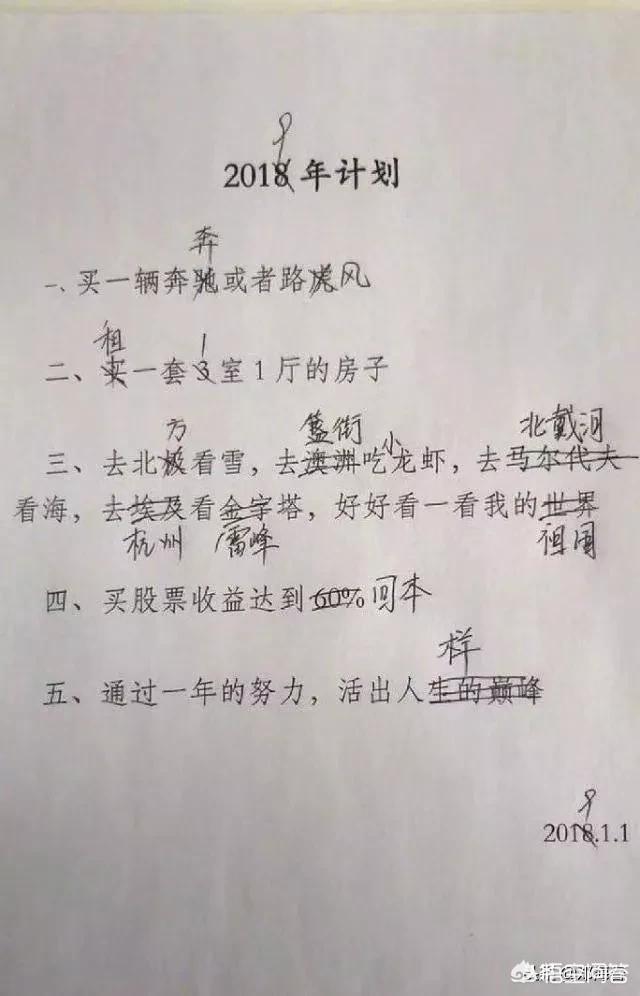 9
2018 年计划
奔
一、买一辆奔驰或者路虎风
租 1
二、买一套3室1厅的房子
方 簋街 小 北戴河
三、去北极看雪，去澳洲吃龙虾，去马尔代夫
看海，去埃及看金字塔，好好看一看我的世界
杭州 雷峰 祖国
四、买股票收益达到60%回本
样
五、通过一年的努力，活出人生的巅峰
9
2018.1.1
悟空问答